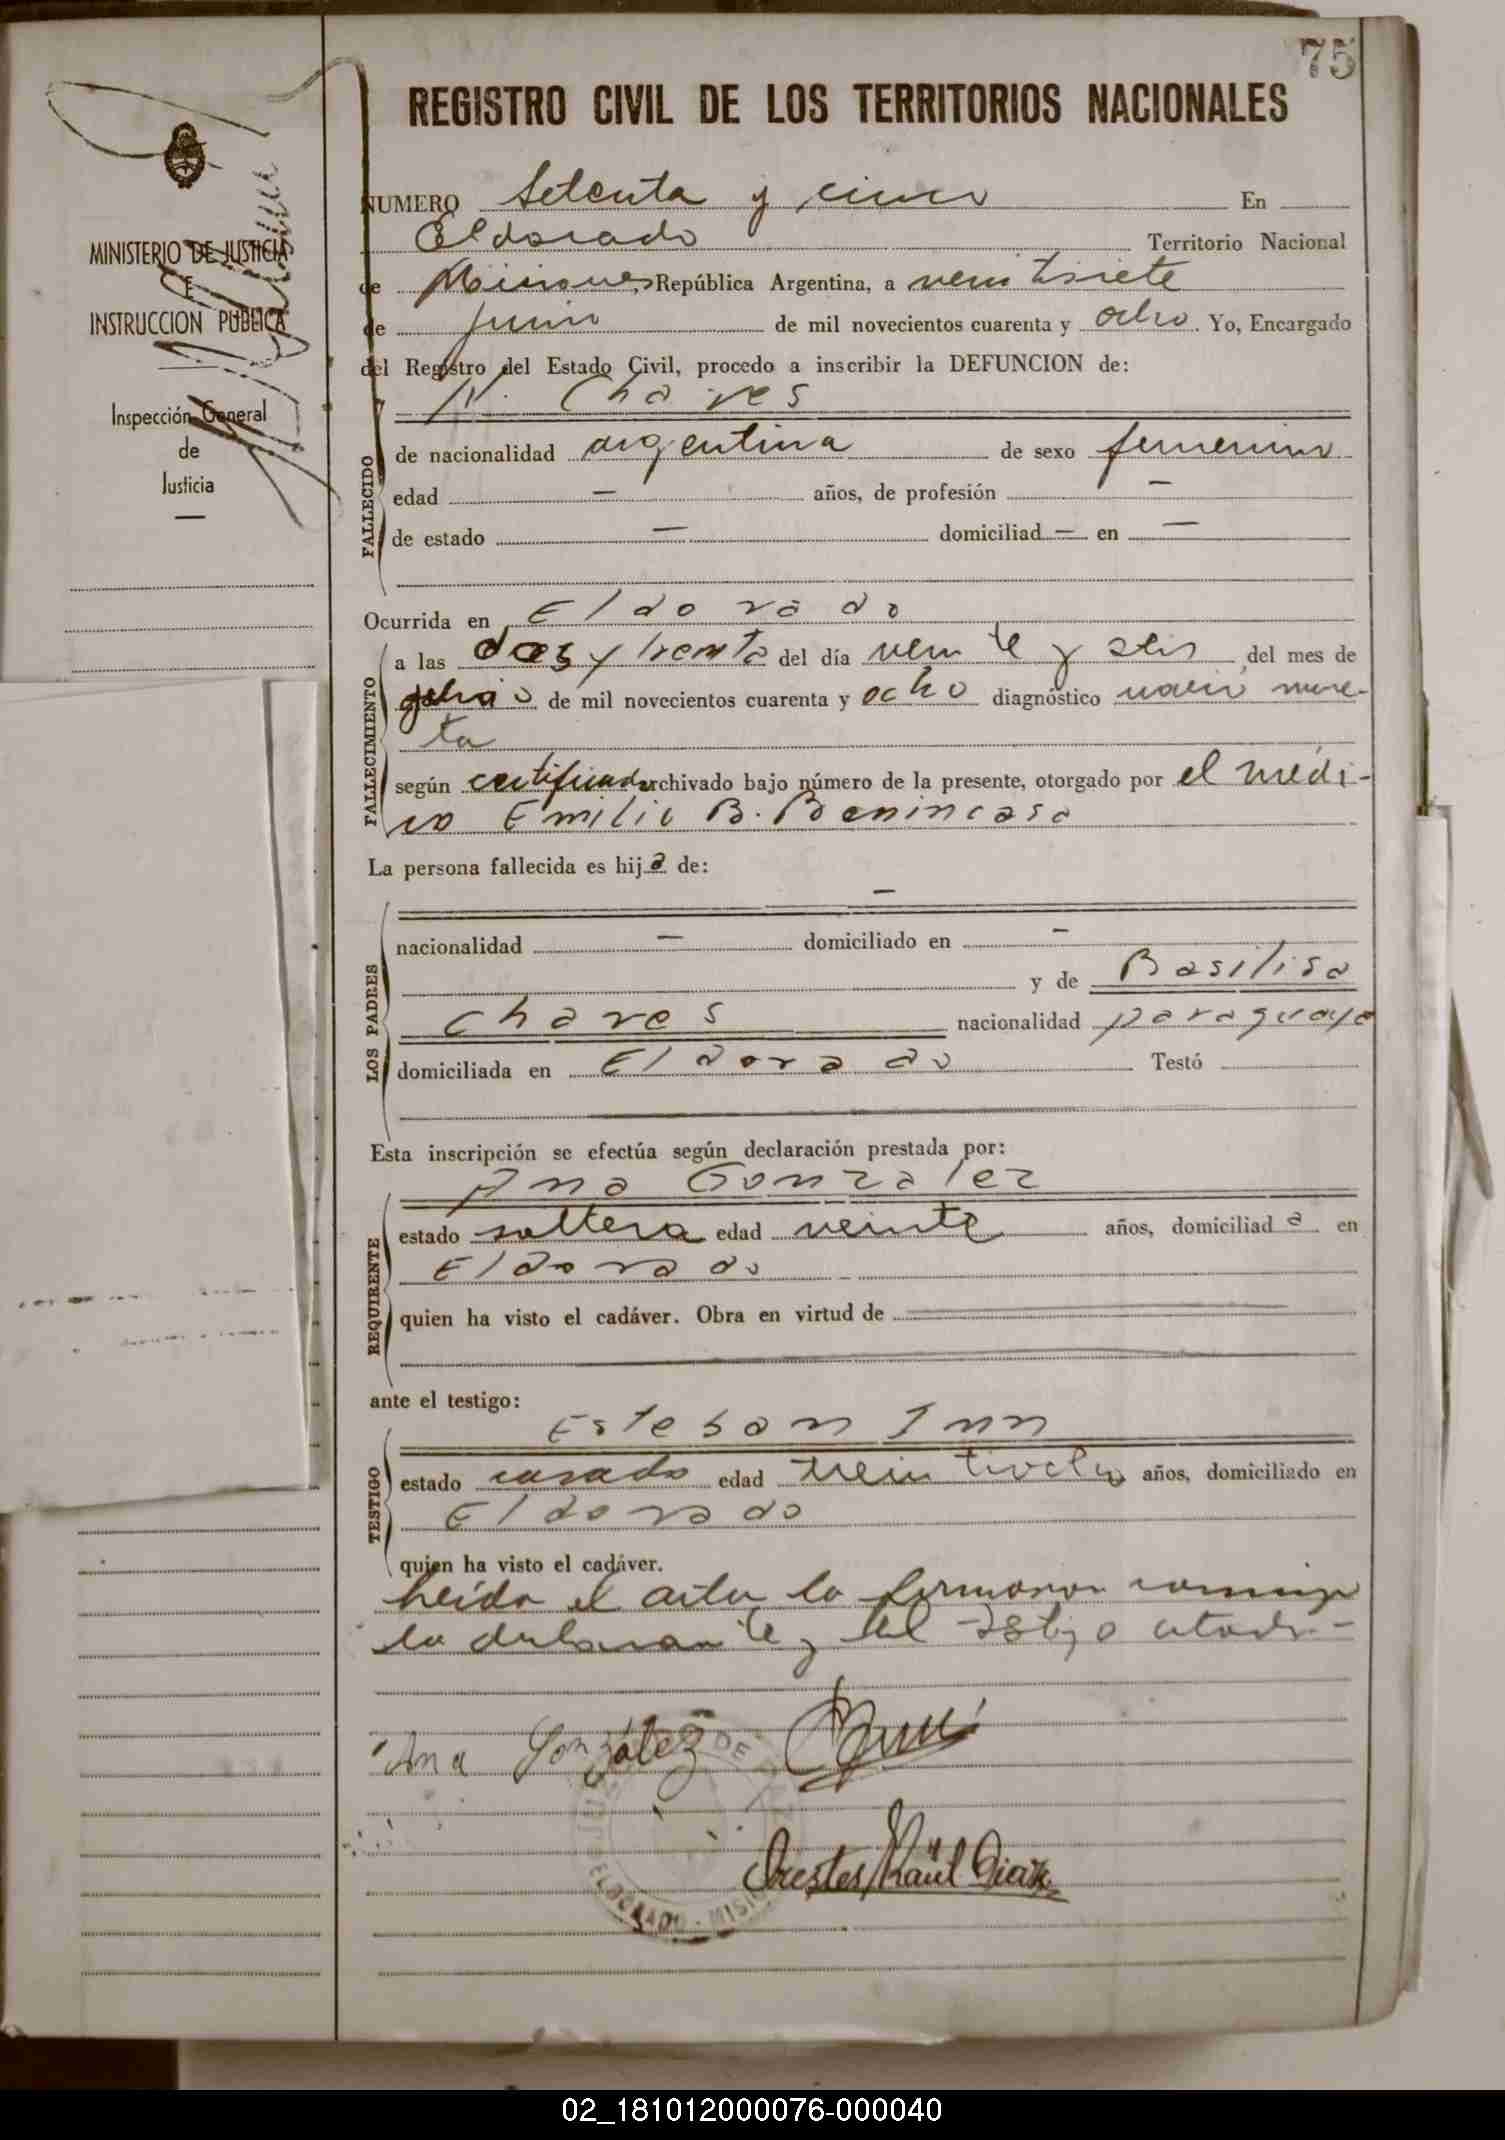 75
REGISTRO CIVIL DE LOS TERRITORIOS NACIONALES
MINISTERIO DE JUSTICIA
E
INSTRUCCION PUBLICA
Inspección General
de
Justicia
NUMERO Setenta y cinco En
Eldorado Territorio Nacional
de Misiones República Argentina, a veintisiete
de junio de mil novecientos cuarenta y ocho. Yo, Encargado
del Registro del Estado Civil, procedo a inscribir la DEFUNCION de:
N. Chaves
FALLECIDO
de nacionalidad argentina de sexo femenino
edad — años, de profesión —
de estado — domiciliad — en —
Ocurrida en Eldorado
FALLECIMIENTO
a las dos y treinta del día veinte y seis del mes de
de mil novecientos cuarenta y ocho diagnóstico nació muer-
ta
según certificado archivado bajo número de la presente, otorgado por el médi-
co Emilio B. Benincasa
La persona fallecida es hija de:
LOS PADRES
—
nacionalidad — domiciliado en —
y de Basilisa
Chaves nacionalidad paraguaya
domiciliada en Eldorado Testó
Esta inscripción se efectúa según declaración prestada por:
Ana Gonzalez
REQUIRENTE
estado soltera edad veinte años, domiciliada en
Eldorado
quien ha visto el cadáver. Obra en virtud de
ante el testigo:
Esteban Inn
TESTIGO
estado casado edad treintiocho años, domiciliado en
Eldorado
quien ha visto el cadáver.
Leída el acta la firmaron conmigo
la declarante y el testigo citado.-
Ana González
Orestes Raúl Diaz
ELDORADO - MISIONES
02_181012000076-000040